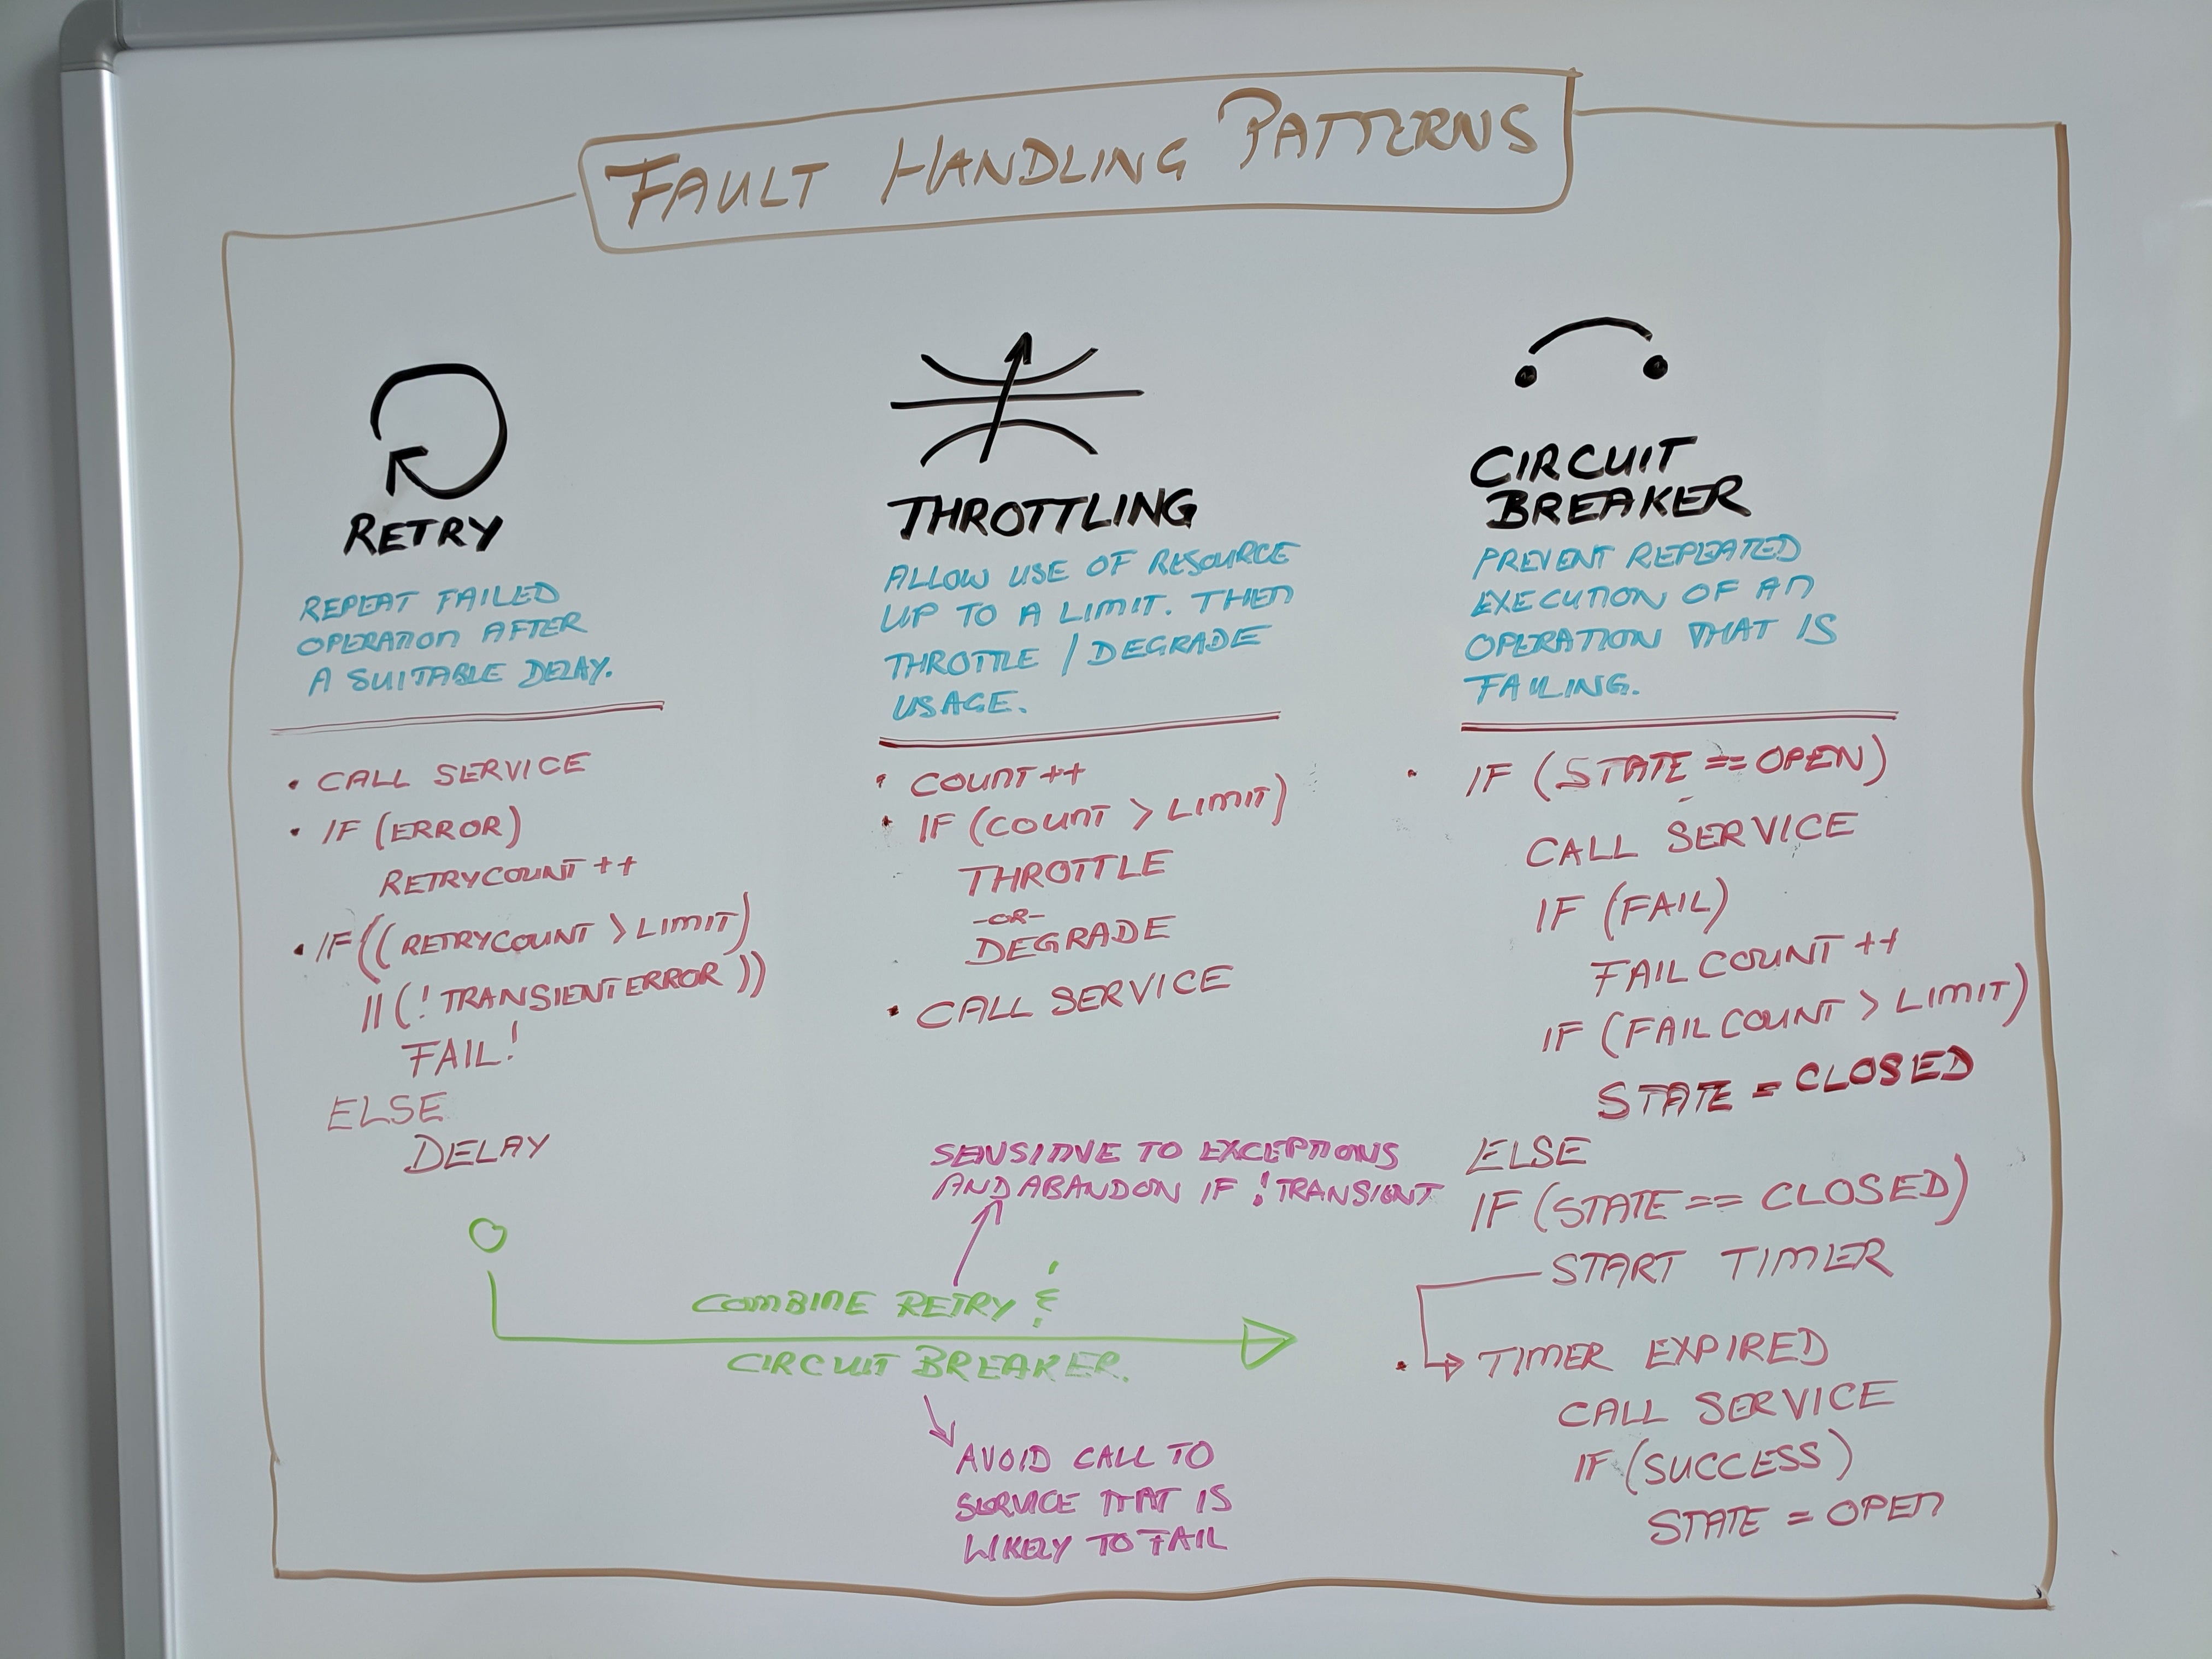 FAULT HANDLING PATTERNS
RETRY
REPEAT FAILED
OPERATION AFTER
A SUITABLE DELAY.
• CALL SERVICE
• IF (ERROR)
RETRYCOUNT ++
• IF ((RETRYCOUNT > LIMIT)
|| (! TRANSIENT ERROR ))
FAIL!
ELSE
DELAY
THROTTLING
ALLOW USE OF RESOURCE
UP TO A LIMIT. THEN
THROTTLE / DEGRADE
USAGE.
• COUNT ++
• IF (COUNT > LIMIT)
THROTTLE
-OR-
DEGRADE
• CALL SERVICE
CIRCUIT
BREAKER
PREVENT REPEATED
EXECUTION OF AN
OPERATION THAT IS
FAILING.
• IF (STATE == OPEN)
CALL SERVICE
IF (FAIL)
FAIL COUNT ++
IF (FAIL COUNT > LIMIT)
STATE = CLOSED
ELSE
IF (STATE == CLOSED)
START TIMER
• TIMER EXPIRED
CALL SERVICE
IF (SUCCESS)
STATE = OPEN
SENSITIVE TO EXCEPTIONS
AND ABANDON IF ! TRANSIENT
COMBINE RETRY &
CIRCUIT BREAKER.
AVOID CALL TO
SERVICE THAT IS
LIKELY TO FAIL